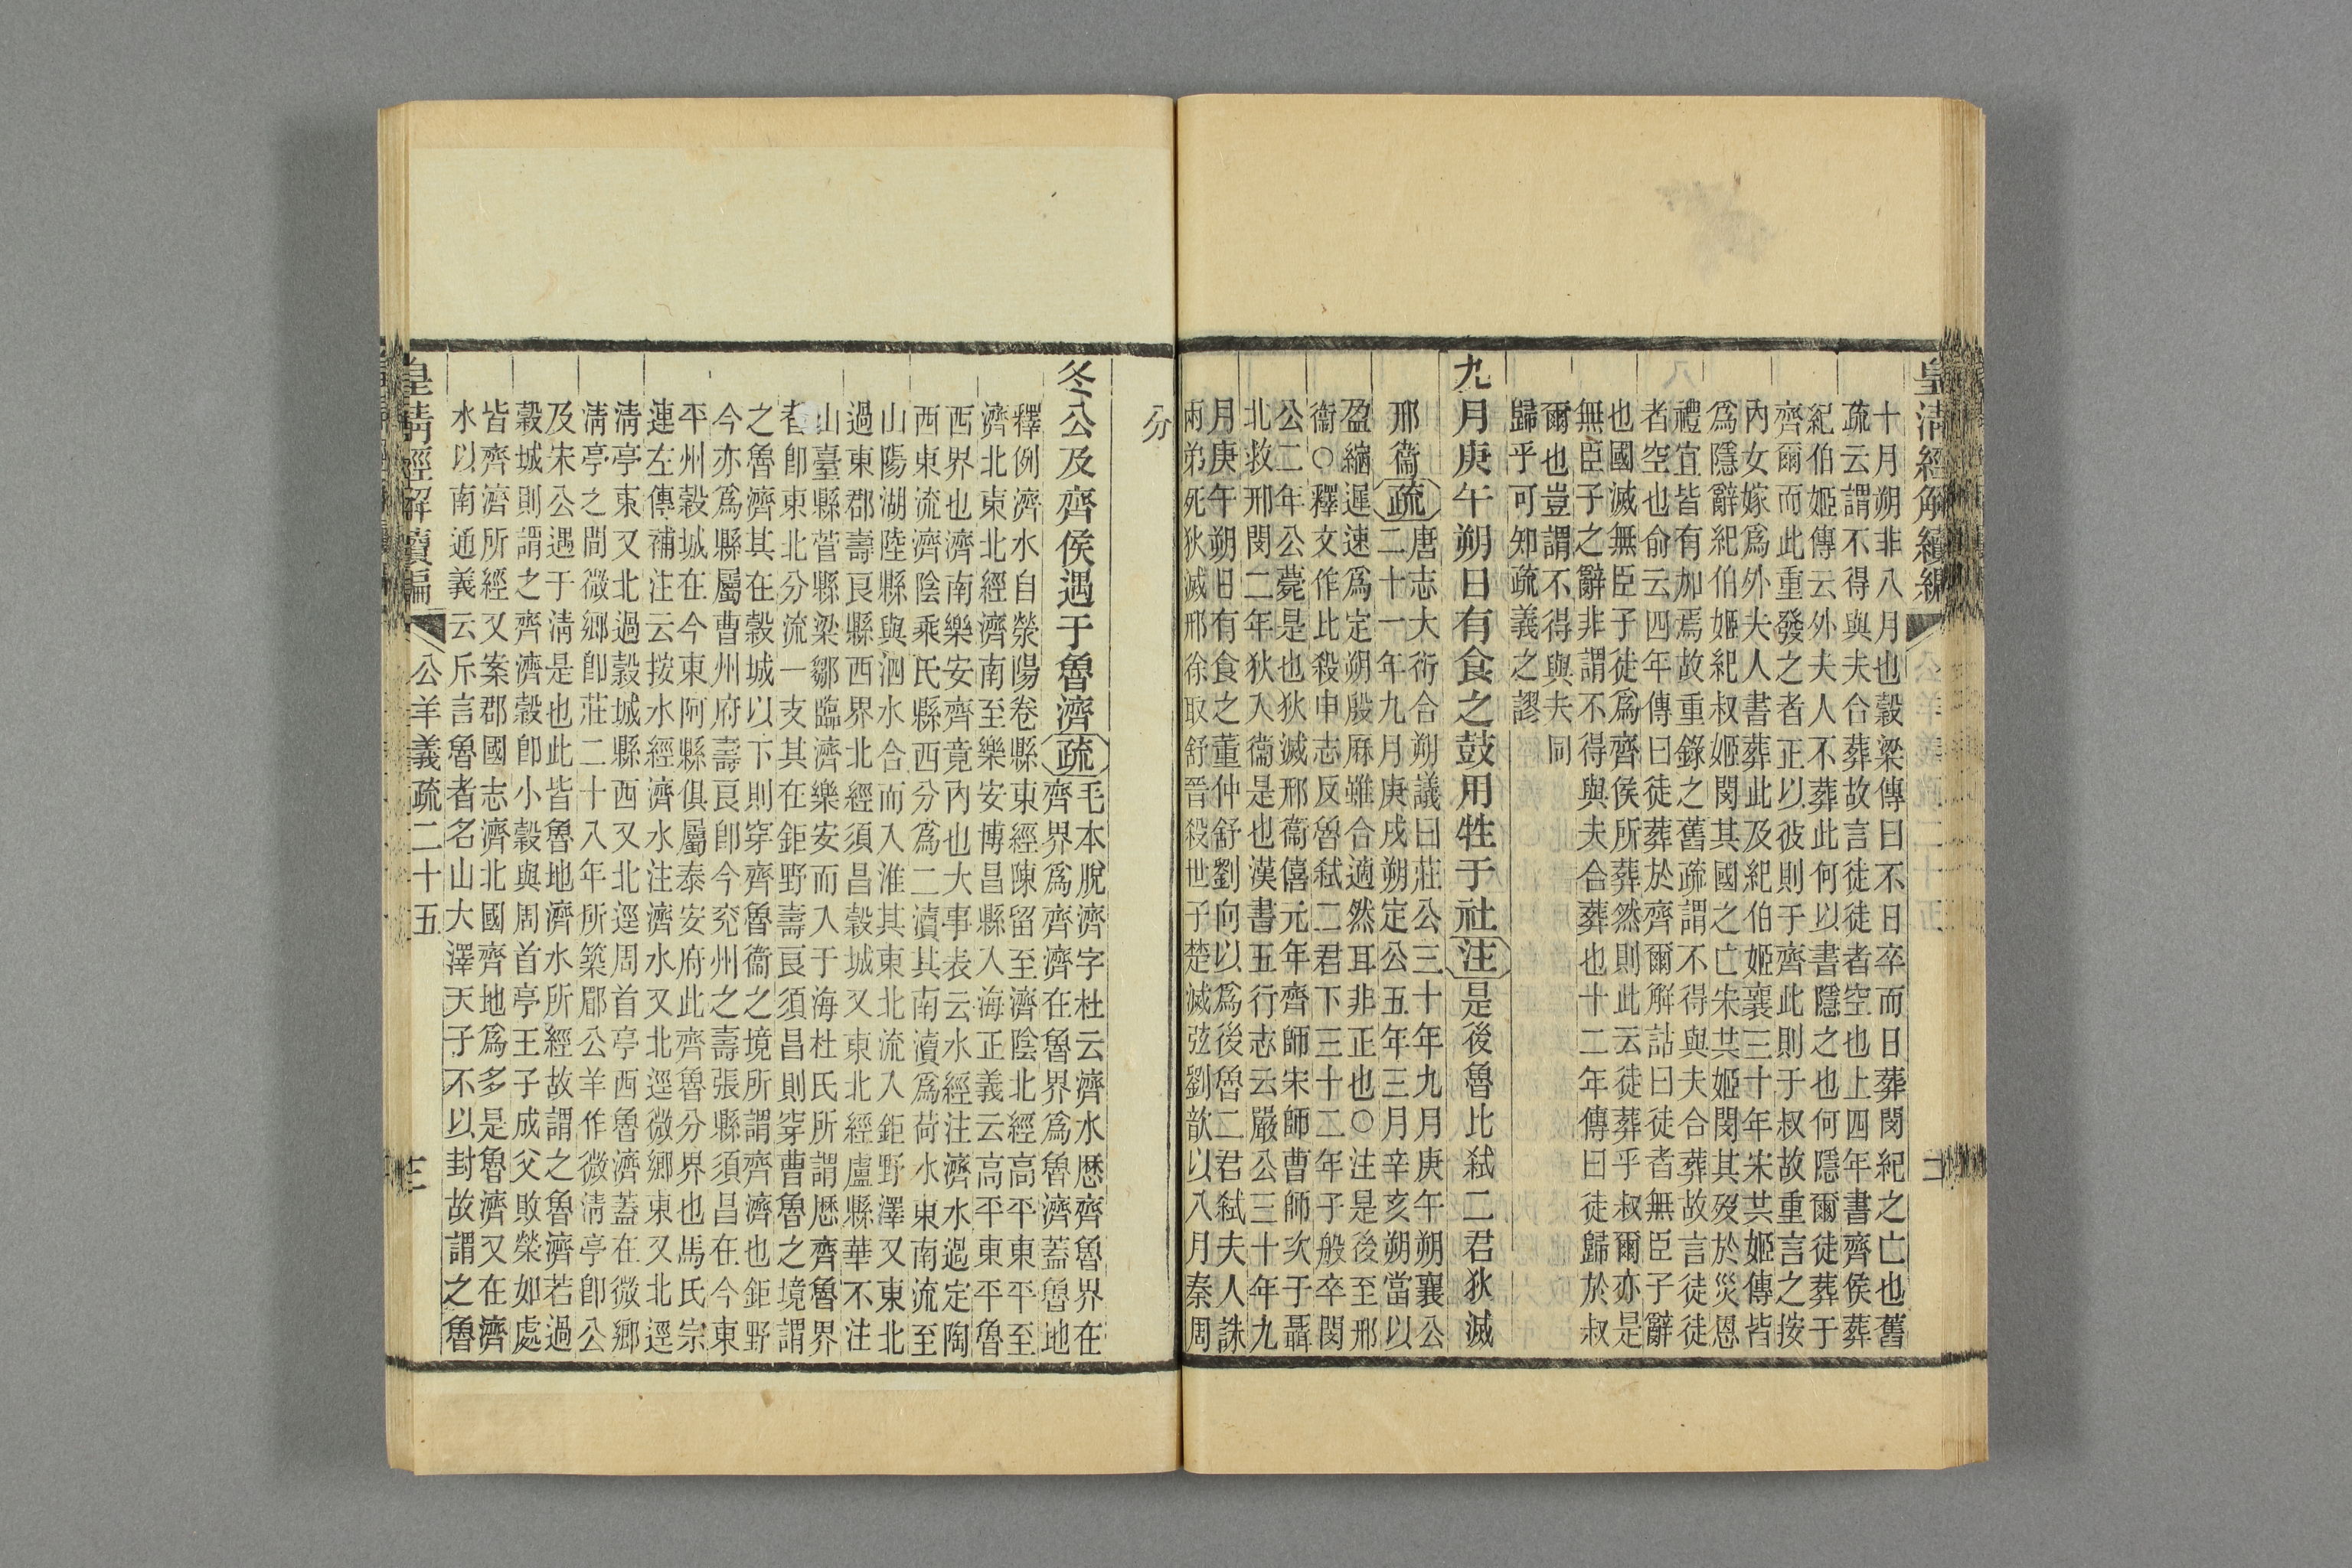 皇清經解續編
十月朔非八月也穀梁傳曰不日卒而日葬閔紀之亡也舊
疏云謂不得與夫合葬故言徒徒者空也上四年書齊侯葬
紀伯姬傳云外夫人不葬此何以書隱之也何隱爾徒葬于
齊爾而此重發之者正以彼則于齊此則于叔故重言之按
內女嫁爲外夫人書葬此及紀伯姬襄三十年宋共姬傳皆
爲隱辭紀伯姬紀叔姬閔其國之亡宋共姬閔其歿於災恩
禮宜皆有加焉故重錄之舊疏謂不得與夫合葬故言徒徒
者空也俞云四年傳曰徒葬於齊爾解詁曰徒者無臣子辭
也國滅無臣子徒爲齊侯所葬然則此云徒葬乎叔爾亦是
無臣子之辭非謂不得與夫合葬也十二年傳曰徒歸於叔
爾也豈謂不得與夫同
歸乎可知疏義之謬
九月庚午朔日有食之鼓用牲于社注是後魯比弒二君狄滅
邢衞疏唐志大衍合朔議曰莊公三十年九月庚午朔襄公
二十一年九月庚戌朔定公五年三月辛亥朔當以
盈縮遲速爲定朔殷厤雖合適然耳非正也○注是後至邢
衞○釋文作比殺申志反魯弒二君下三十二年子般卒閔
公二年公薨是也狄滅邢衞僖元年齊師宋師曹師次于聶
北救邢閔二年狄入衞是也漢書五行志云嚴公三十年九
月庚午朔日有食之董仲舒劉向以爲後魯二君弒夫人誅
兩弟死狄滅邢徐取舒晉殺世子楚滅弦劉歆以八月秦周
分
冬公及齊侯遇于魯濟疏毛本脫濟字杜云濟水歷齊魯界在
齊界爲齊濟在魯界爲魯濟蓋魯地
釋例濟水自滎陽卷縣東經陳留至濟陰北經高平東平至
濟北東北經濟南至樂安博昌縣入海正義云高平東平魯
西界也濟南樂安齊竟內也大事表云水經注濟水過定陶
西東流濟陰乘氏縣西分爲二瀆其南瀆爲荷水東南流至
山陽湖陸縣與泗水合而入淮其東北流入鉅野澤又東北
過東郡壽良縣西界北經須昌穀城又東北經盧縣華不注
山臺縣菅縣梁鄒臨濟樂安而入于海杜氏所謂歷齊魯界
者卽東北分流一支其在鉅野壽良須昌則穿曹魯之境謂
之魯濟其在穀城以下則穿齊魯衞之境所謂齊濟也鉅野
今亦爲縣屬曹州府壽良卽今兗州之壽張縣須昌在今東
平州穀城在今東阿縣俱屬泰安府此齊魯分界也馬氏宗
連左傳補注云按水經濟水注濟水又北逕微鄉東又北逕
淸亭東又北過穀城縣西又北逕周首亭西魯濟蓋在微鄉
淸亭之間微鄉卽莊二十八年所築郿公羊作微淸亭卽公
及宋公遇于淸是也此皆魯地濟水所經故謂之魯濟若過
穀城則謂之齊濟穀卽小穀與周首亭王子成父敗榮如處
皆齊濟所經又案郡國志濟北國齊地爲多是魯濟又在濟
水以南通義云斥言魯者名山大澤天子不以封故謂之魯
皇清經解續編
公羊義疏二十五
三